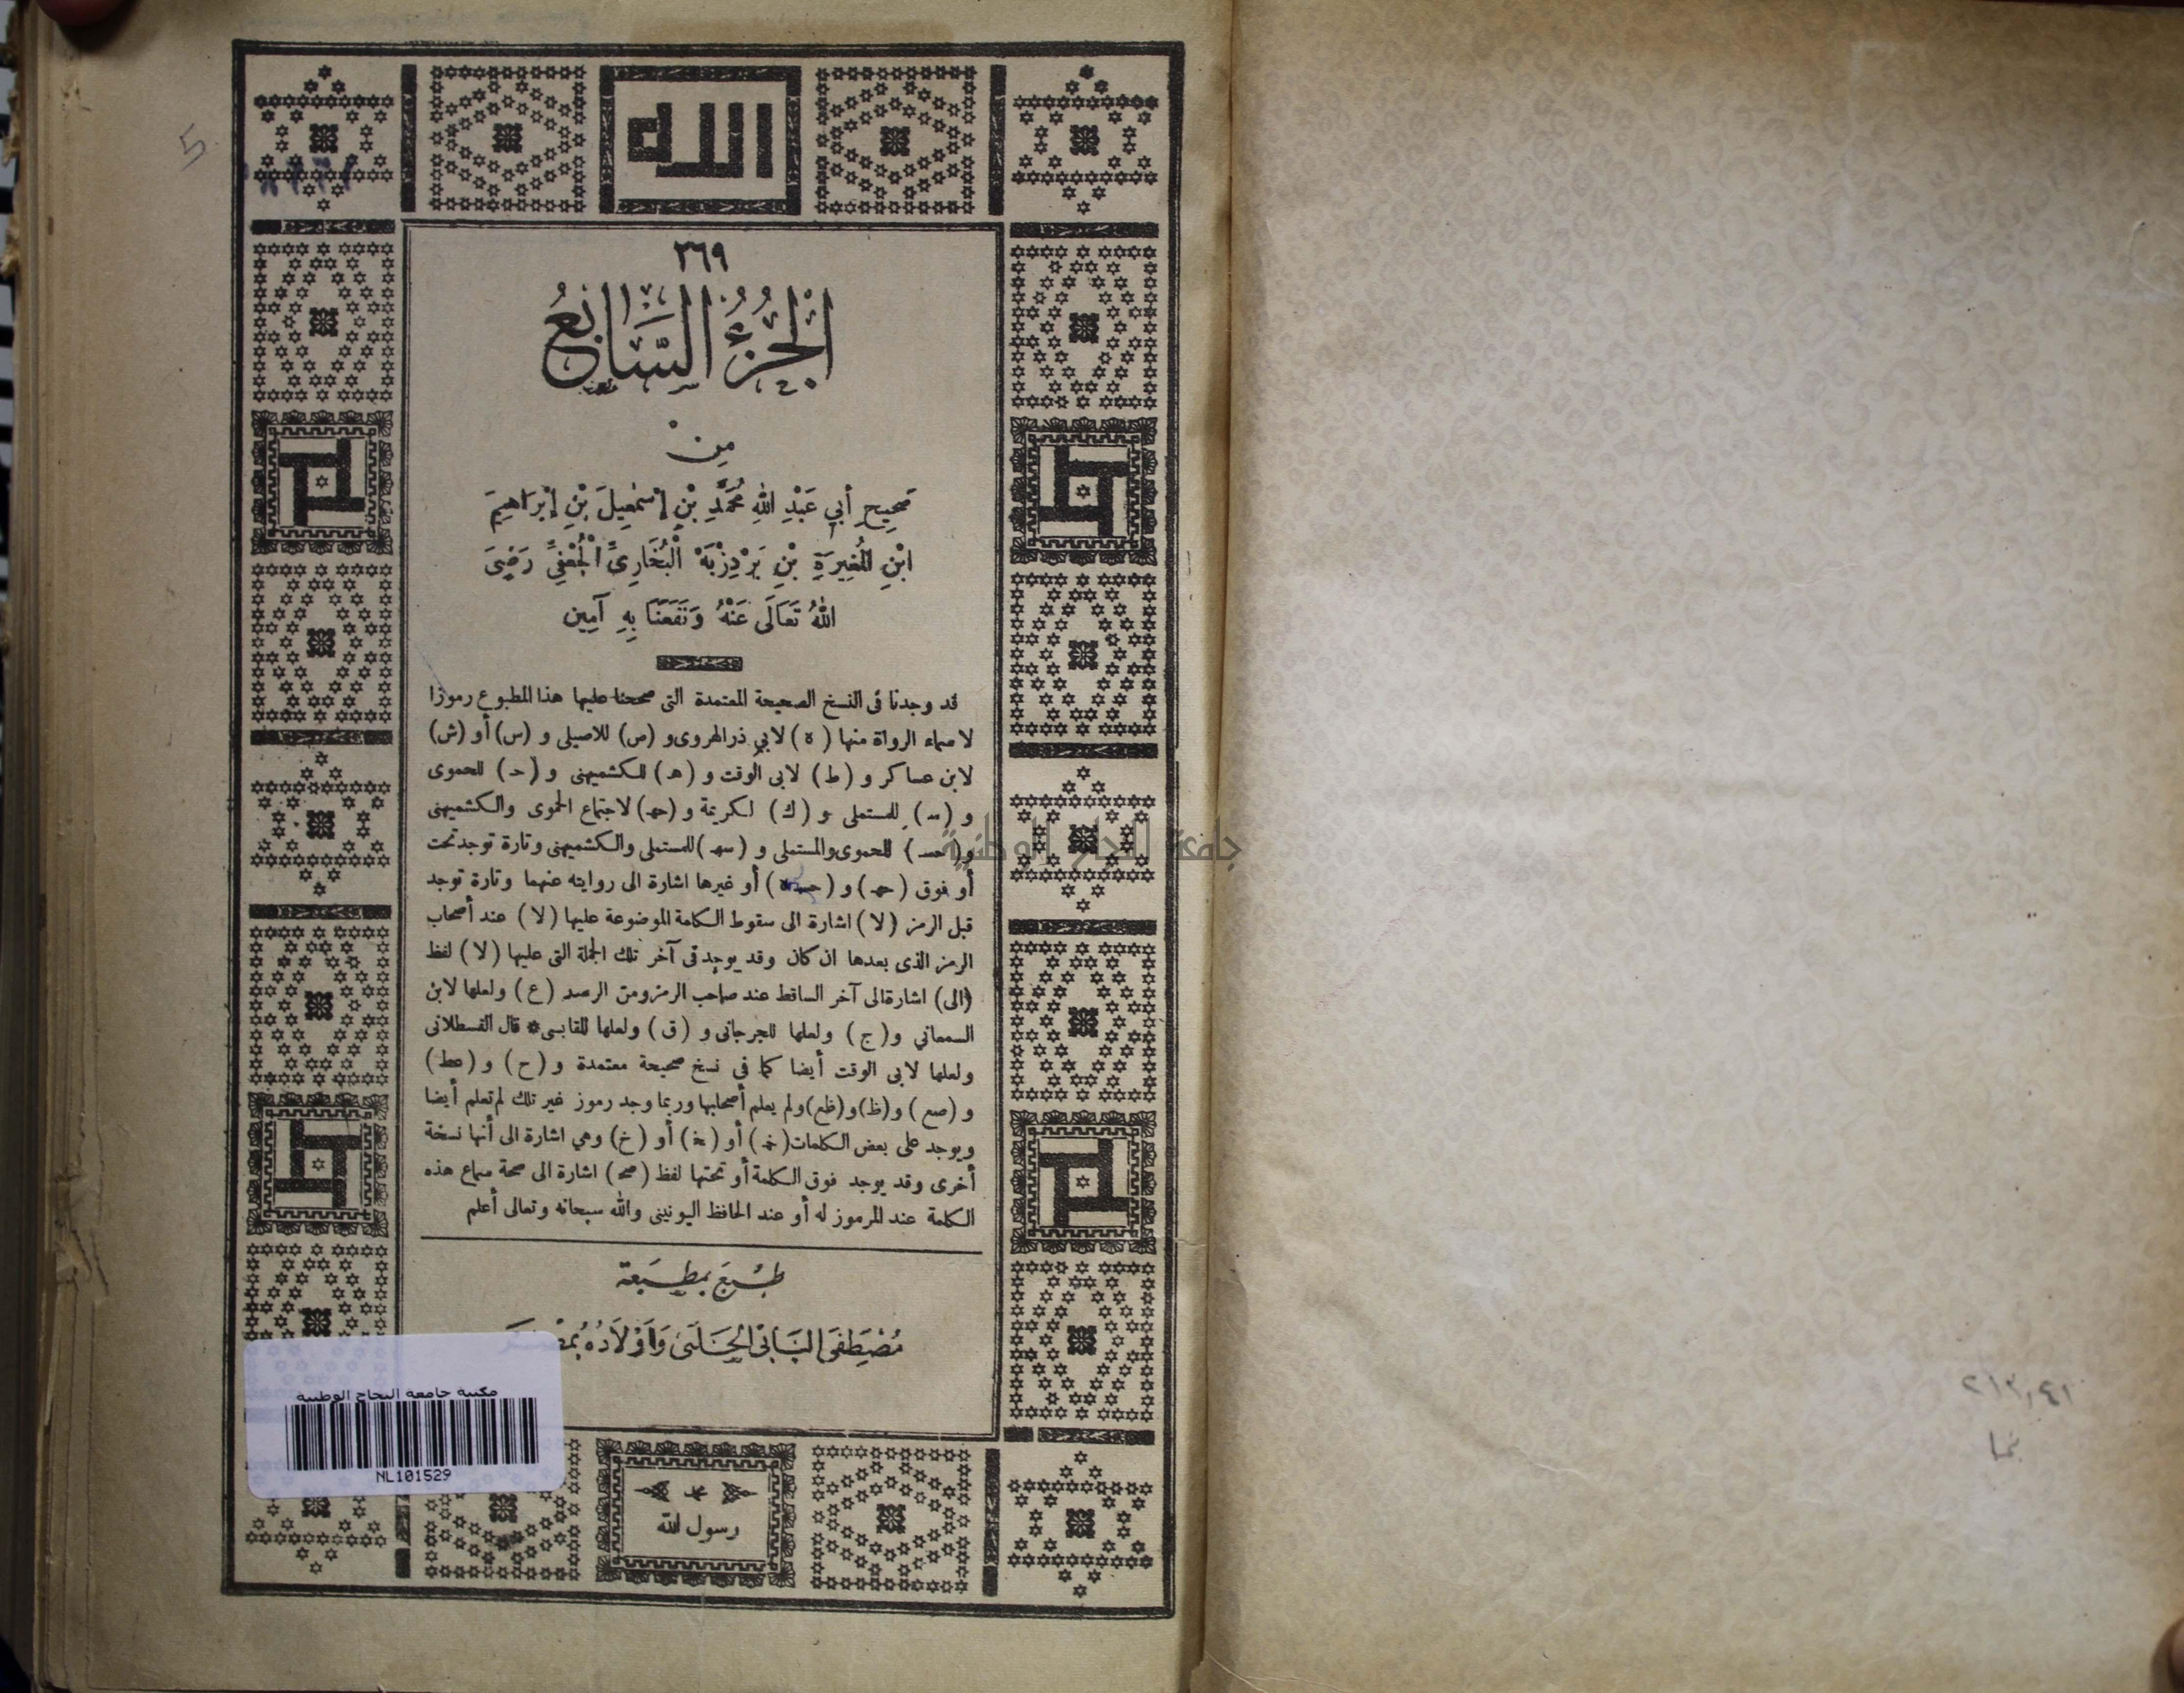 الله
٣٦٩
الْجُزْءُ السَّابِعُ
مِنْ
صَحِيحِ أَبِي عَبْدِ اللهِ مُحَمَّدِ بْنِ إِسْمٰعِيلَ بْنِ إِبْرَاهِيمَ
ابْنِ الْمُغِيرَةِ بْنِ بَرْدِزْبَهْ الْبُخَارِيِّ الْجُعْفِيِّ رَضِيَ
اللهُ تَعَالَى عَنْهُ وَنَفَعَنَا بِهِ آمِين
قد وجدنا فى النسخ الصحيحة المعتمدة التى صححنا عليها هذا المطبوع رموزا
لاسماء الرواة منها (ه) لابي ذر الهروى و (ص) للاصيلى و (س) أو (ش)
لابن عساكر و (ط) لابى الوقت و (هـ) للكشميهنى و (حـ) للحموى
و (سـ) للمستملى و (ك) لكريمة و (حهـ) لاجتماع الحموى والكشميهنى
و (حسـ) للحموى والمستملى و (سهـ) للمستملى والكشميهنى وتارة توجد تحت
أو فوق (حهـ) و () أو غيرها اشارة الى روايته عنهما وتارة توجد
قبل الرمز (لا) اشارة الى سقوط الكلمة الموضوعة عليها (لا) عند أصحاب
الرمز الذى بعدها ان كان وقد يوجد فى آخر تلك الجملة التى عليها (لا) لفظ
(الى) اشارة الى آخر الساقط عند صاحب الرمز ومن الرمز (ع) ولعلها لابن
السمعاني و (ج) ولعلها للجرجانى و (ق) ولعلها للقابسى * قال القسطلانى
ولعلها لابى الوقت أيضا كما فى نسخ صحيحة معتمدة و (ح) و (عط)
و (صع) و (ظ) و (ظع) ولم يعلم أصحابها وربما وجد رموز غير تلك لم تعلم أيضا
ويوجد على بعض الكلمات (خـ) أو (خ) أو (خ) وهي اشارة الى أنها نسخة
أخرى وقد يوجد فوق الكلمة أو تحتها لفظ (صحـ) اشارة الى صحة سماع هذه
الكلمة عند المرموز له أو عند الحافظ اليونينى والله سبحانه وتعالى أعلم
طُبِعَ بِمَطْبَعَة
مُصْطَفَى الْبَابِى الْحَلَبِى وَأَوْلَادُهُ بِمِصْر
مكتبة جامعة النجاح الوطنية
NL101529
رسول الله
جامعة النجاح الوطنية
5
٢١٣,٤١